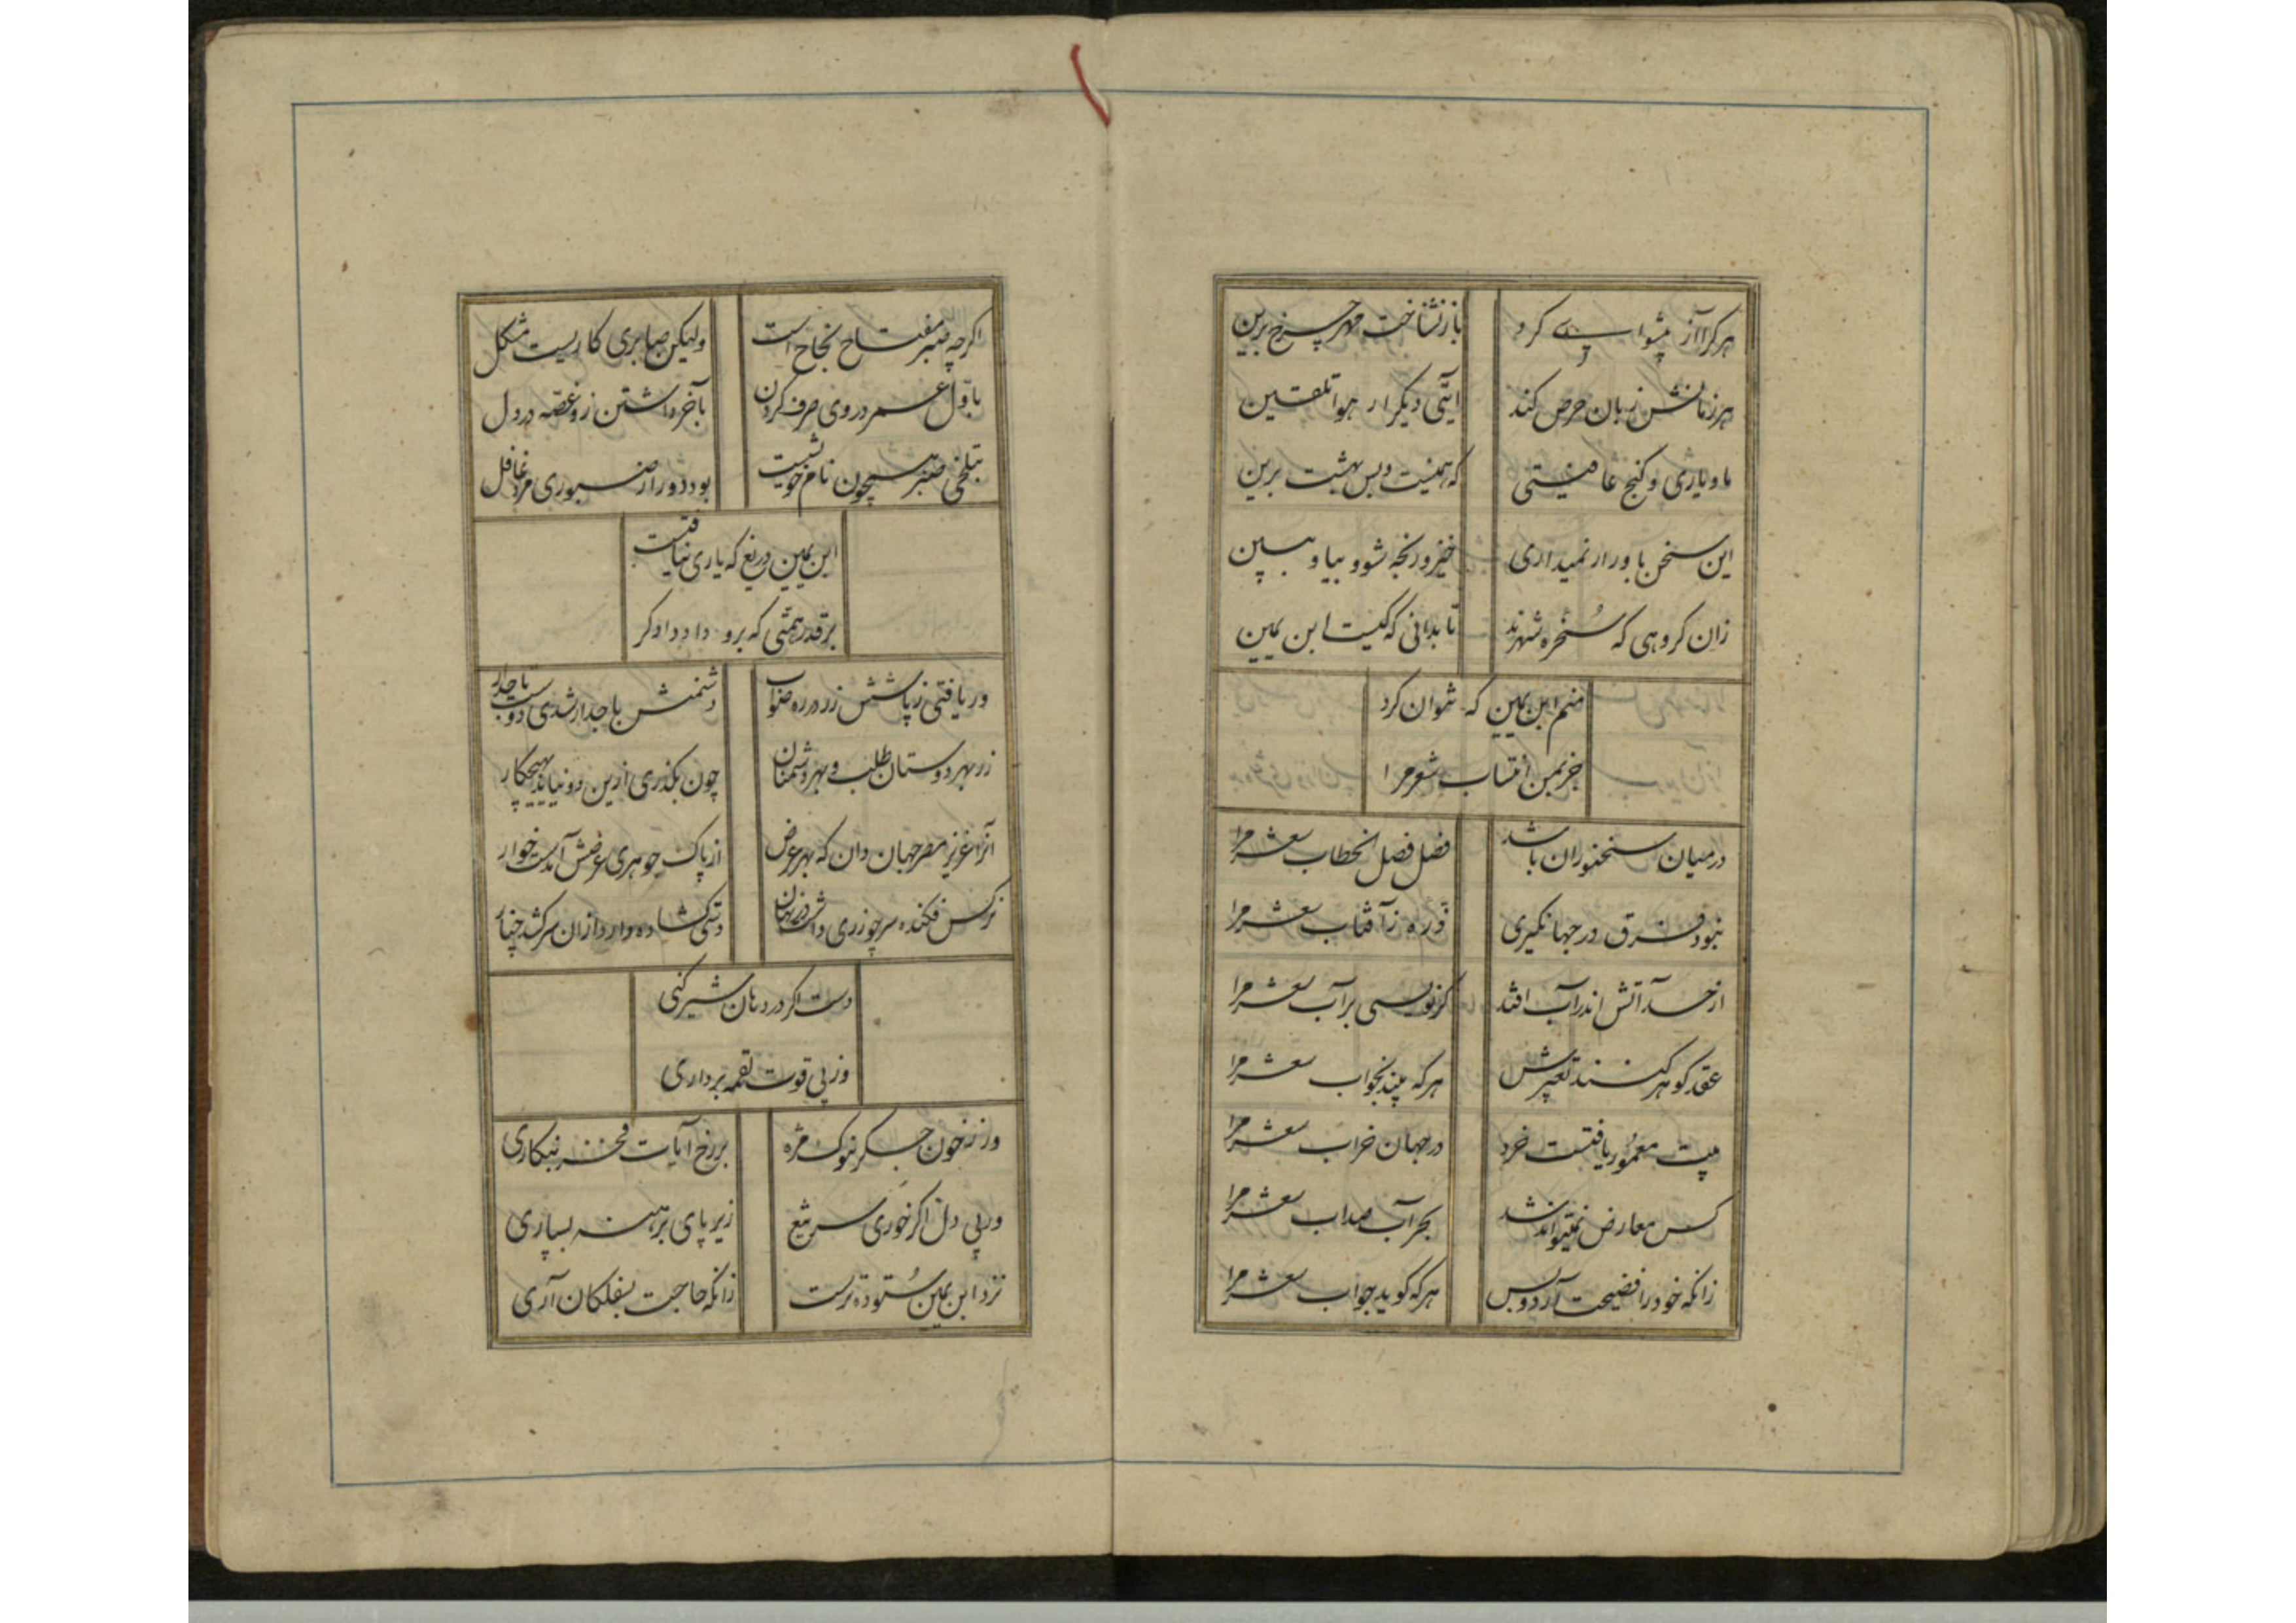 هرکرا آز پیشوایی کرد
بازنشناخت مهر چرخ برین
هر زمانش زبان حرص کند
آیتی دیکر از هوا تلقین
ما و یاری و کنج عافیتی
که همینست و بس بهشت برین
این سخن باور ار نمیداری
خیز و رنجه شو و بیا و ببین
زان کروهی که سخره شهرند
تا بدانی که کیست ابن یمین
منم ابن یمین که نتوان کرد
جز بمن انتساب شعر مرا
در میان سخنوران باشد
فضل فصل الخطاب شعر مرا
نبود فرق در جهانکیری
ذره ز آفتاب شعر مرا
از حسد آتش اندر آب افتد
کر نویسی بر آب شعر مرا
عقد کوهر کنند تعبیرش
هر که بیند بخواب شعر مرا
بیت معمور یافتست خرد
در جهان خراب شعر مرا
کس معارض نمیتواند شد
بجز آب شعر مرا
زانکه خود را فضیحت آرد و بس
هر که کوید جواب شعر مرا
اکرچه صبر مفتاح نجاح است
ولیکن صابری کاریست مشکل
باول عمر در وی صرف کردن
بآخر داشتن زو غصه در دل
بتلخی صبر همچون نام خویشست
بود دور از صبوری مرد غافل
ابن یمین دریغ که یاری نیافتست
بر قدر همتی که برو داد دادکر
ور یافتی ز پاشش زر در ره صواب
دشمنش
زر بهر دوستان طلب و بهر دشمنان
چون بکذری ازین دو نیاید بهیچکار
آنرا عزیز مصر جهان دان که بهر عرض
از پاک جوهری عرضش آمدست خوار
نرکس فکنده سر چو زری داشت در نهان
دستی کشاده دارد ازان سر کشد چنار
دست اکر در دهان شیر کنی
وز پی قوت لقمه برداری
ور ز خون جکر بنوک مژه
بر رخ آیات فخر بنکاری
ور پی دل اکر خوری سر تیغ
زیر پای برهنه بسپاری
نزد ابن یمین ستوده ترست
زانکه حاجت بسفلکان آری